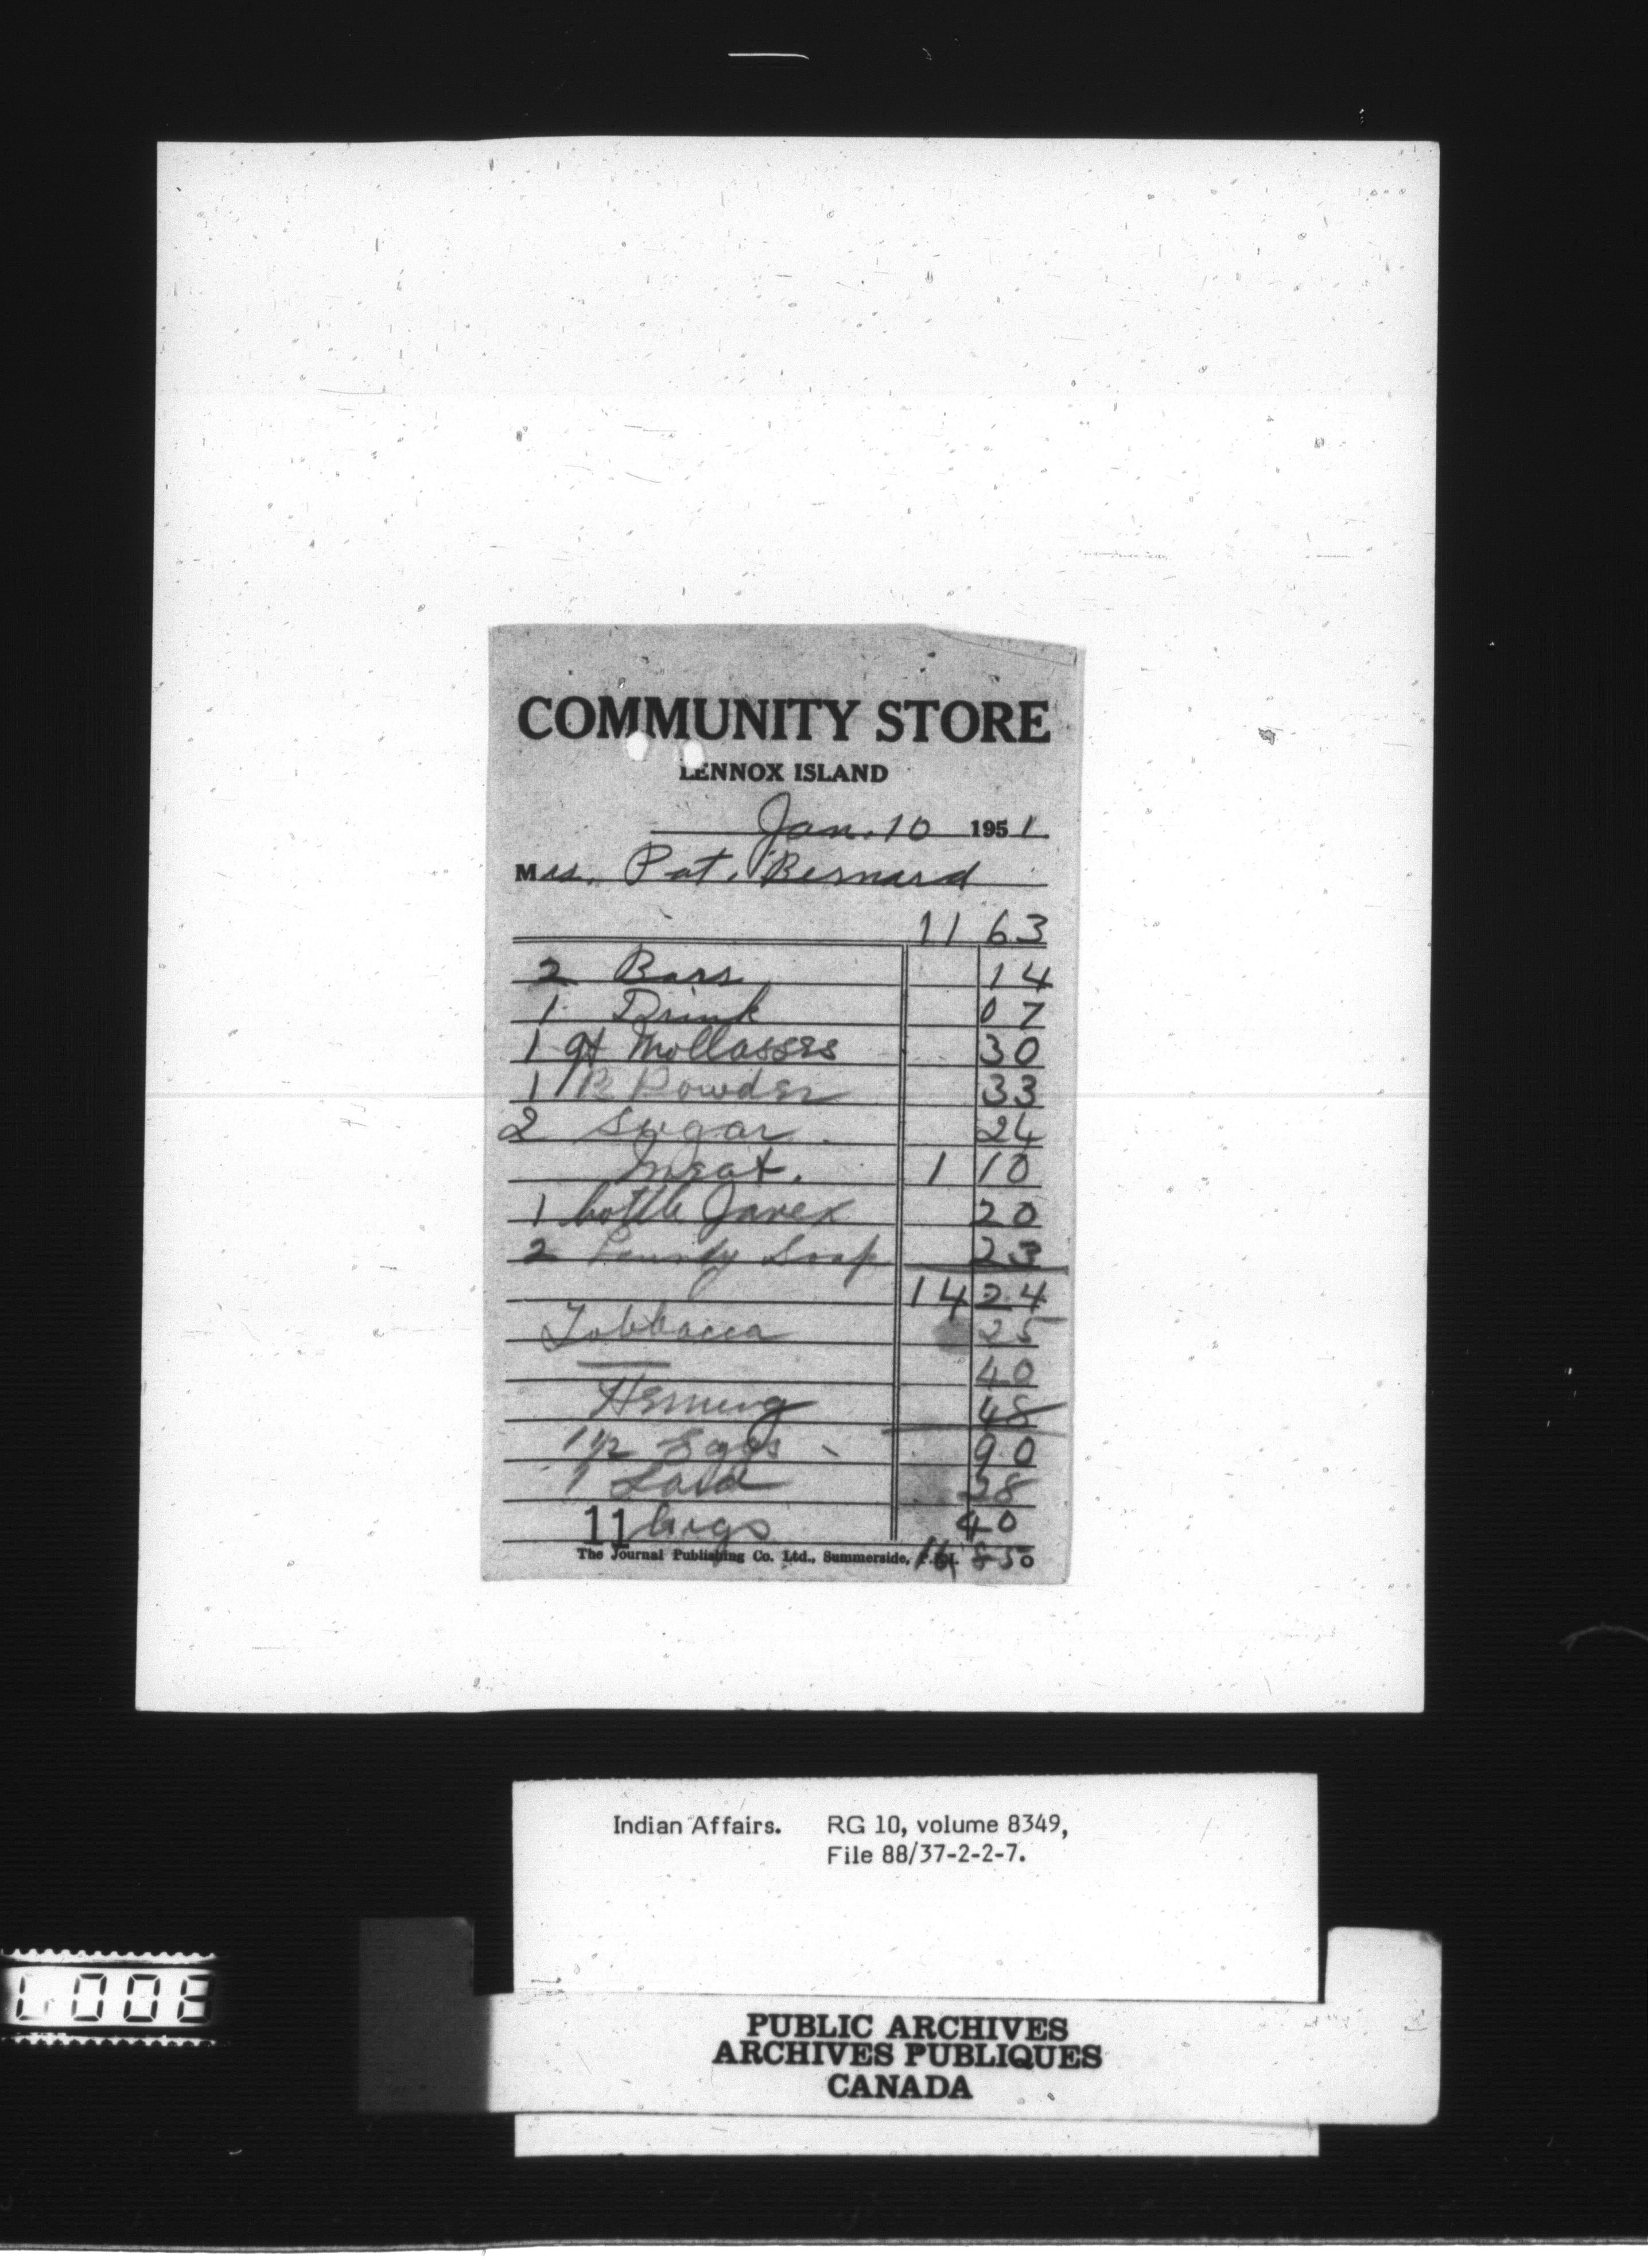 COMMUNITY STORE
LENNOX ISLAND
Jan. 10 1951
Mrs. Pat. Bernard
11 63
2 Bars 14
1 Drink 07
1 qt Mollasses 30
1 B Powder 33
2 Sugar 24
Meat. 1 10
1 bottle Javex 20
2 Laundy Soap 23
14 24
Tobbacca 25
40
Herring 48
1 1/2 Eggs 90
1 Lard 28
11 40
The Journal Publishing Co. Ltd., Summerside, P.E.I.
Indian Affairs. RG 10, volume 8349,
File 88/37-2-2-7.
PUBLIC ARCHIVES
ARCHIVES PUBLIQUES
CANADA